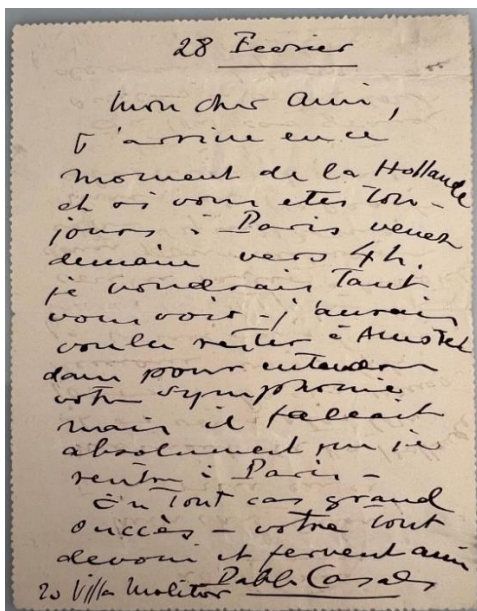 28 Fevrier
Mon cher Ami,
J'arrive en ce
moment de la Hollande
et si vous etes tou-
jours à Paris venez
demain vers 4h.
je voudrais tant
vous voir - j'aurais
voulu rester à Amster
dam pour entendre
votre symphonie
mais il fallait
absolument que je
rentre à Paris -
En tout cas grand
succès - votre tout
devoué et fervent ami
Pablo Casals
20 Villa Molitor